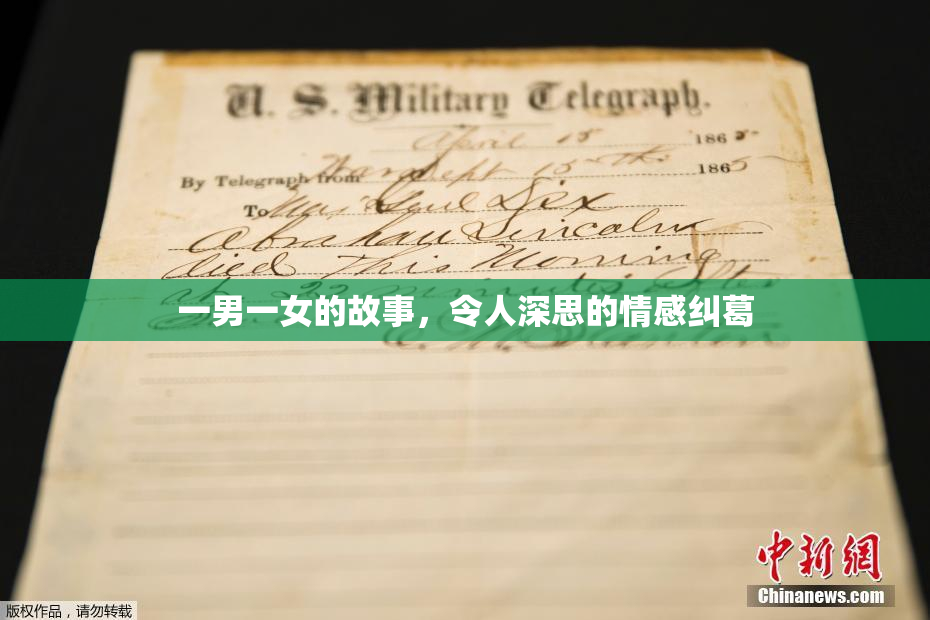 U. S. Military Telegraph.
April 15 1865
By Telegraph from War Dept 15th 1865
To Maj Genl Dix
Abraham Lincoln
died this Morning
at 22 minutes after
一男一女的故事，令人深思的情感纠葛
E. M. Stanton
中新网
Chinanews.com
版权作品，请勿转载